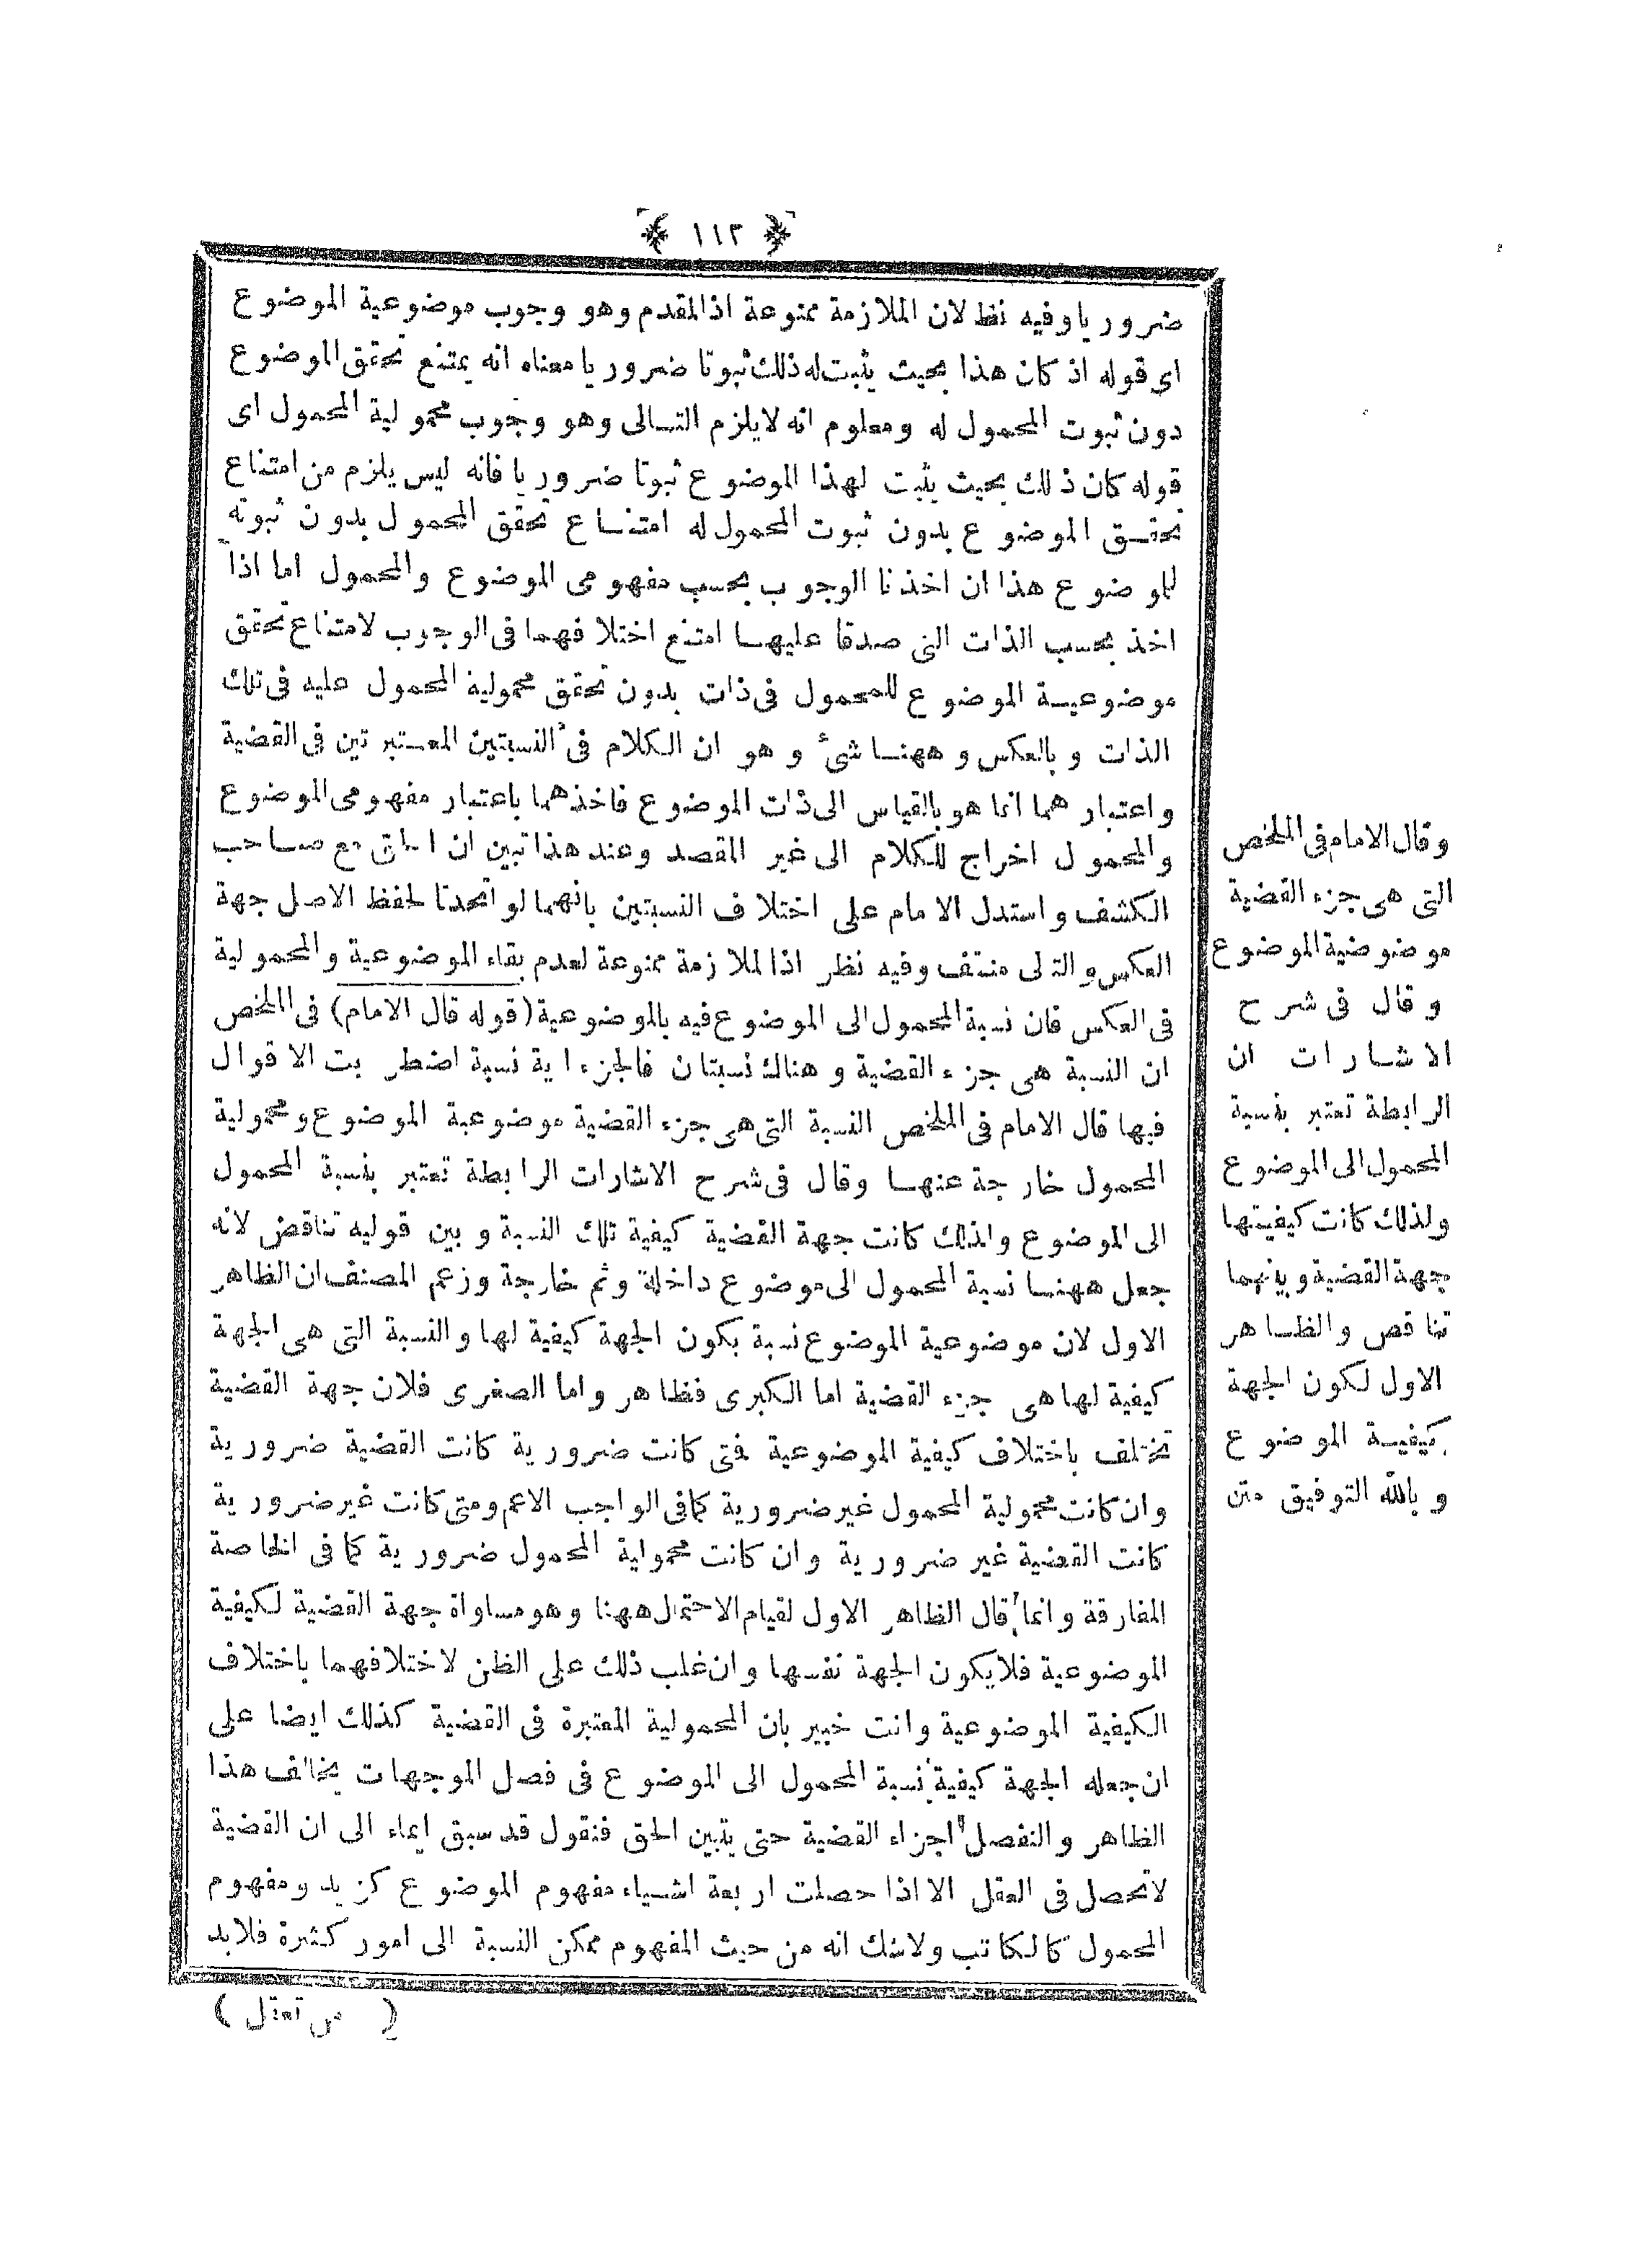 ﴿ ١١٢ ﴾
ضروريا وفيه نظر لان الملازمة ممنوعة اذ المقدم وهو وجوب موضوعية الموضوع
اى قوله اذ كان هذا بحيث يثبت له ذلك ثبوتا ضروريا معناه انه يمتنع تحقق الموضوع
دون ثبوت المحمول له ومعلوم انه لا يلزم التالى وهو وجوب محمولية المحمول اى
قوله كان ذلك بحيث يثبت لهذا الموضوع ثبوتا ضروريا فانه ليس يلزم من امتناع
تحقق الموضوع بدون ثبوت المحمول له امتناع تحقق المحمول بدون ثبوته
للموضوع هذا ان اخذنا الوجوب بحسب مفهومى الموضوع والمحمول اما اذا
اخذ بحسب الذات التى صدقا عليها امتنع اختلافهما فى الوجوب لامتناع تحقق
موضوعية الموضوع للمحمول فى ذات بدون تحقق محمولية المحمول عليه فى تلك
الذات وبالعكس وههنا شئ وهو ان الكلام فى النسبتين المعتبرتين فى القضية
واعتبارهما انما هو بالقياس الى ذات الموضوع فاخذهما باعتبار مفهومى الموضوع
والمحمول اخراج للكلام الى غير المقصد وعند هذا تبين ان الحق مع صاحب
الكشف واستدل الامام على اختلاف النسبتين بانهما لو اتحدتا لحفظ الاصل جهة
العكس والتالى منتف وفيه نظر اذ الملازمة ممنوعة لعدم بقاء الموضوعية والمحمولية
فى العكس فان نسبة المحمول الى الموضوع فيه بالموضوعية (قوله قال الامام) فى الملخص
ان النسبة هى جزء القضية وهناك نسبتان فالجزء اية نسبة اضطربت الاقوال
فيها قال الامام فى الملخص النسبة التى هى جزء القضية موضوعية الموضوع ومحمولية
المحمول خارجة عنها وقال فى شرح الاشارات الرابطة تعتبر بنسبة المحمول
الى الموضوع ولذلك كانت جهة القضية كيفية تلك النسبة وبين قوليه تناقض لانه
جعل ههنا نسبة المحمول الى موضوع داخلة وثم خارجة وزعم المصنف ان الظاهر
الاول لان موضوعية الموضوع نسبة بكون الجهة كيفية لها والنسبة التى هى الجهة
كيفية لها هى جزء القضية اما الكبرى فظاهر واما الصغرى فلان جهة القضية
تختلف باختلاف كيفية الموضوعية فمتى كانت ضرورية كانت القضية ضرورية
وان كانت محمولية المحمول غير ضرورية كما فى الواجب الاعم ومتى كانت غير ضرورية
كانت القضية غير ضرورية وان كانت محمولية المحمول ضرورية كما فى الخاصة
المفارقة وانما قال الظاهر الاول لقيام الاحتمال ههنا وهو مساواة جهة القضية لكيفية
الموضوعية فلا يكون الجهة نفسها وان غلب ذلك على الظن لاختلافهما باختلاف
الكيفية الموضوعية وانت خبير بان المحمولية المعتبرة فى القضية كذلك ايضا على
ان جعله الجهة كيفية نسبة المحمول الى الموضوع فى فصل الموجهات يخالف هذا
الظاهر ولنفصل اجزاء القضية حتى يتبين الحق فنقول قد سبق ايماء الى ان القضية
لا تحصل فى العقل الا اذا حصلت اربعة اشياء مفهوم الموضوع كزيد ومفهوم
المحمول كالكاتب ولا شك انه من حيث المفهوم ممكن النسبة الى امور كثيرة فلا بد
( من تعقل )
وقال الامام فى الملخص
التى هى جزء القضية
موضوضية الموضوع
وقال فى شرح
الاشارات ان
الرابطة تعتبر بنسبة
المحمول الى الموضوع
ولذلك كانت كيفيتها
جهة القضية وبينهما
تناقض والظاهر
الاول لكون الجهة
كيفية الموضوع
وبالله التوفيق متن